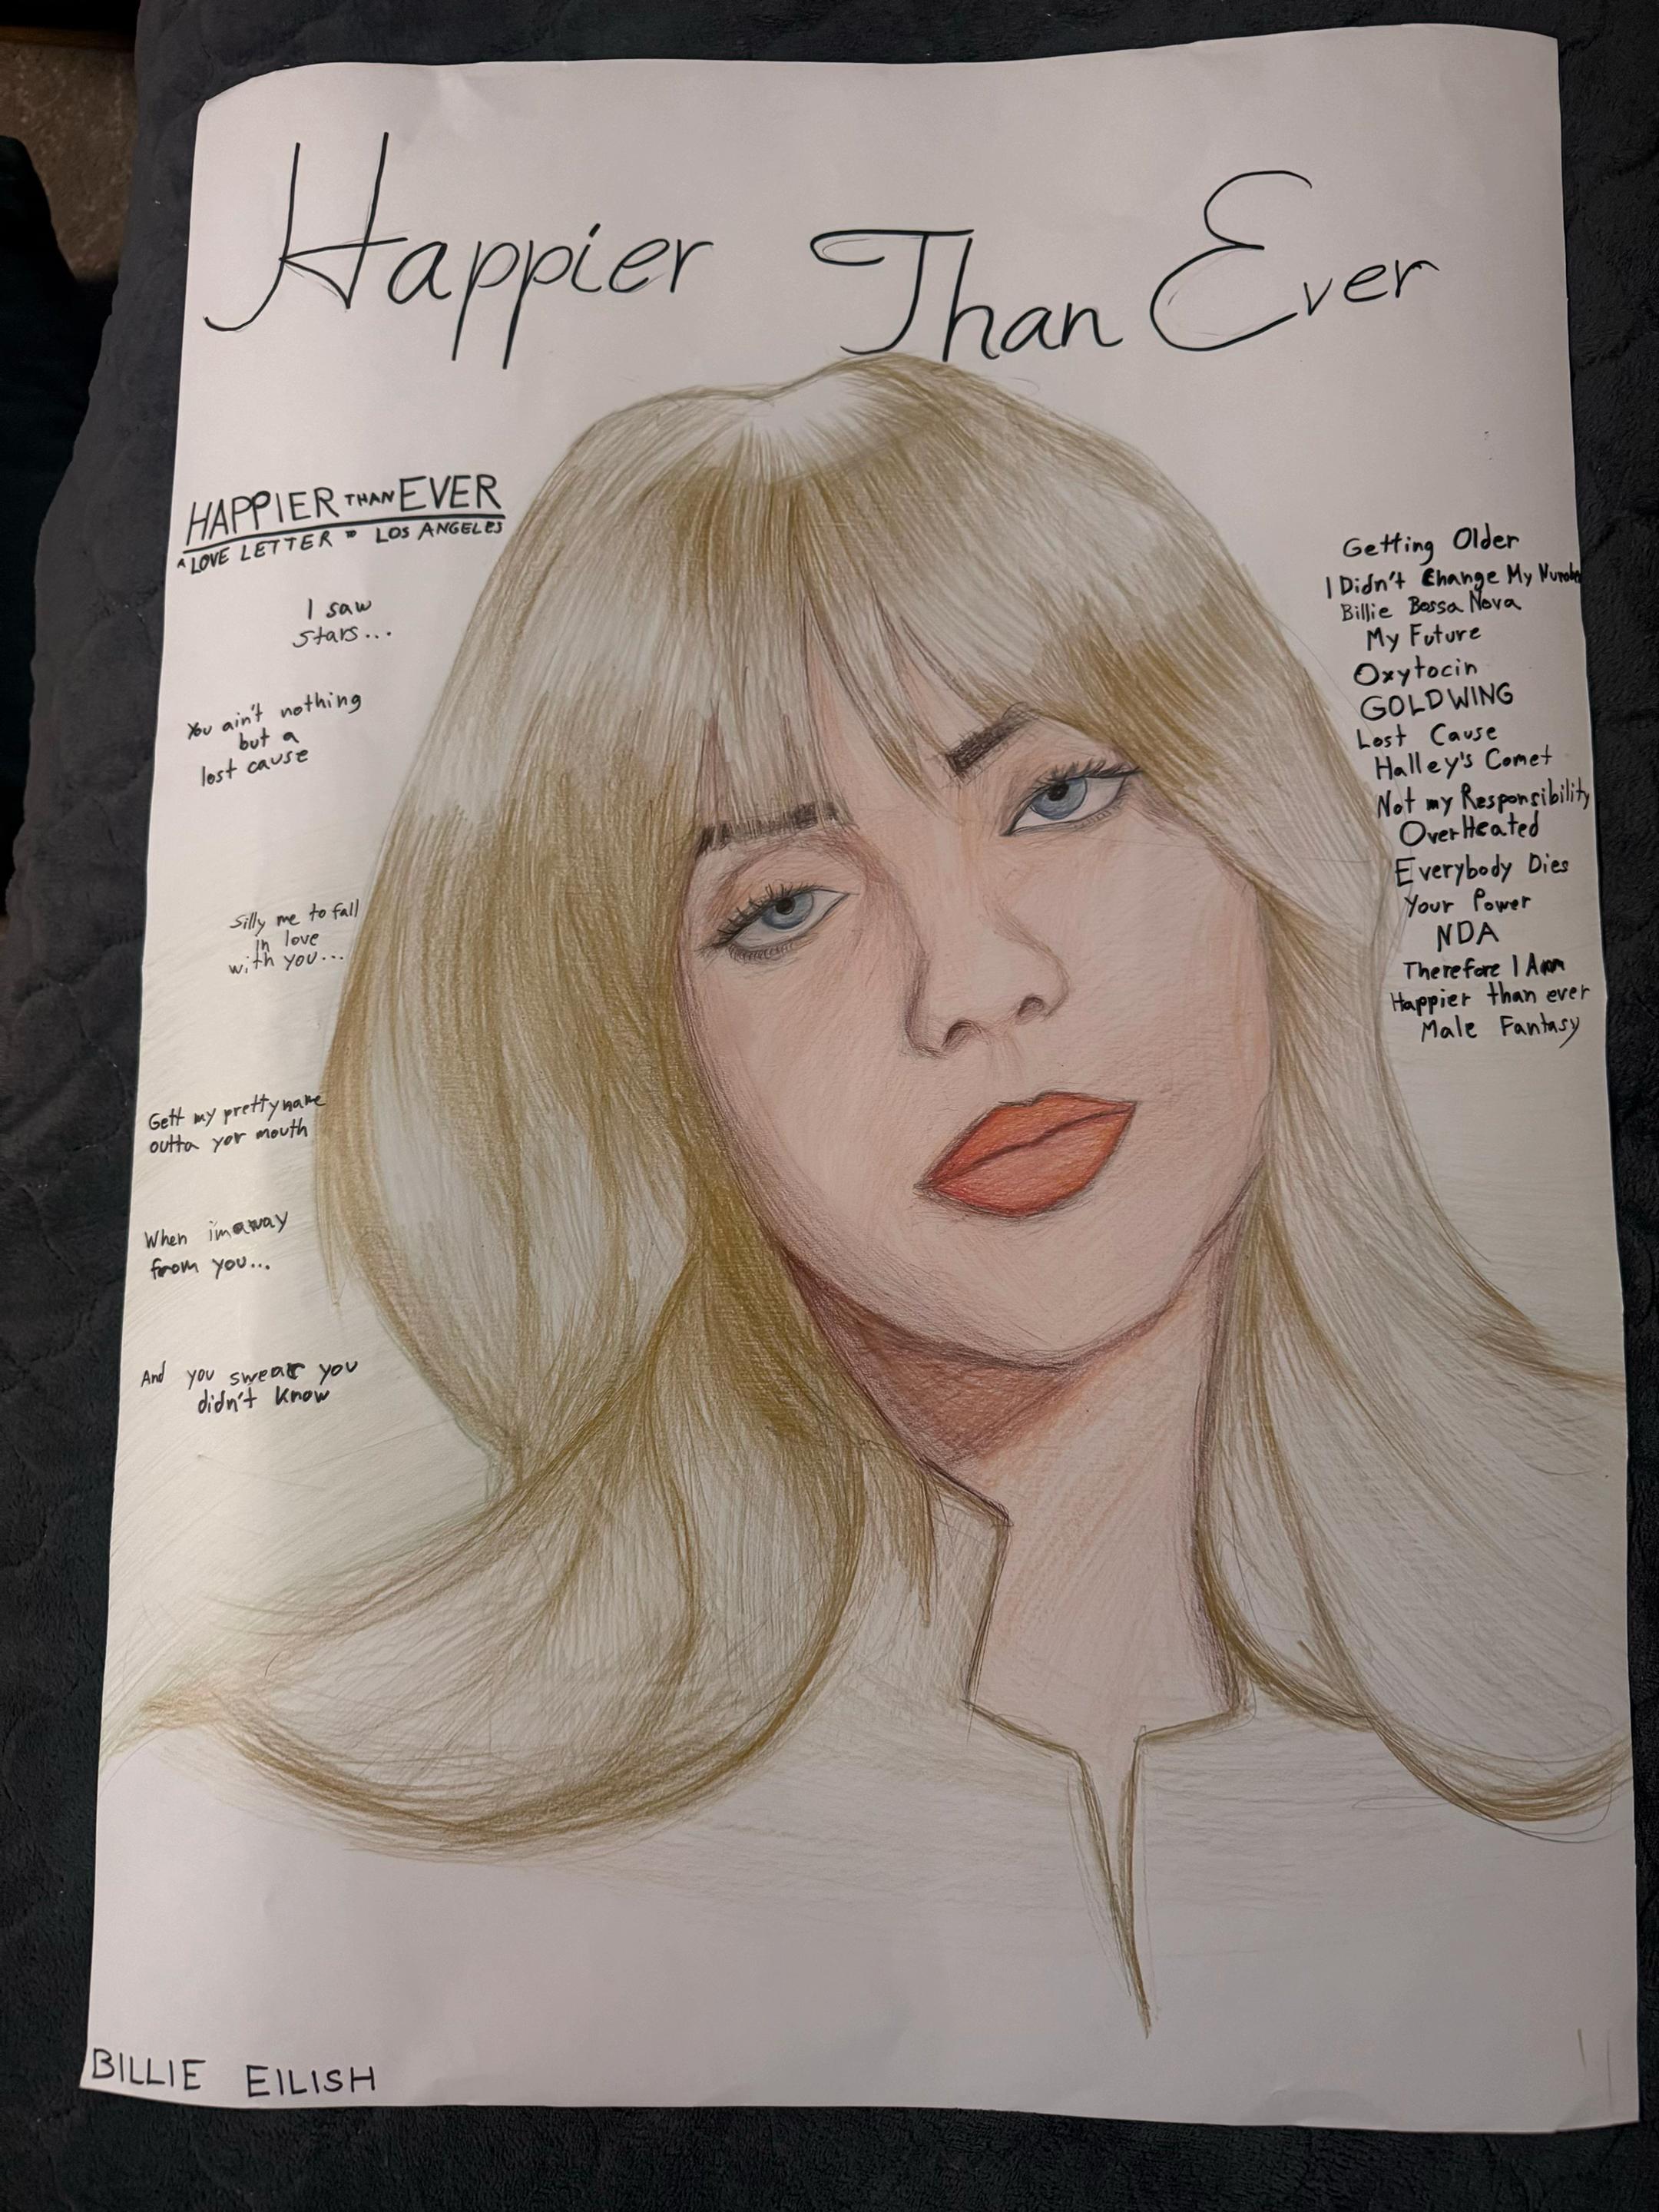 Happier Than Ever
HAPPIER THAN EVER
A LOVE LETTER TO LOS ANGELES
I saw
stars...
You ain't nothing
but a
lost cause
Silly me to fall
in love
with you...
Gett my pretty name
outta yor mouth
When im away
from you...
And you swear you
didn't know
Getting Older
I Didn't Change My Number
Billie Bossa Nova
My Future
Oxytocin
GOLDWING
Lost Cause
Halley's Comet
Not my Responsibility
OverHeated
Everybody Dies
Your Power
NDA
Therefore I Am
Happier than ever
Male Fantasy
BILLIE EILISH